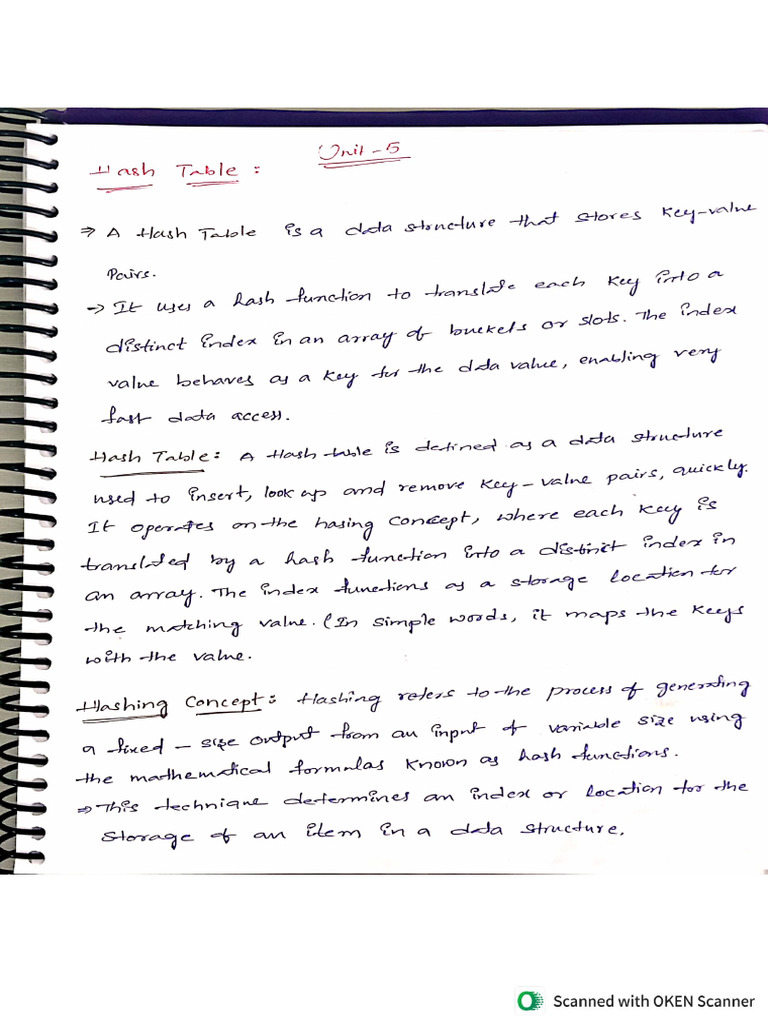 Unit - 5
Hash Table :
⇒ A Hash Table is a data structure that stores key-value
Pairs.
→ It uses a hash function to translate each key into a
distinct index in an array of buckets or slots. The index
value behaves as a key for the data value, enabling very
fast data access.
Hash Table: A Hash table is defined as a data structure
used to insert, look up and remove key-value pairs, quickly.
It operates on the hasing concept, where each key is
translated by a hash function into a distinct index in
an array. The index functions as a storage location for
the matching value. (In simple words, it maps the keys
with the value.
Hashing Concept: Hashing refers to the process of generating
a fixed - size output from an input of variable size using
the mathematical formulas known as hash functions.
⇒ This technique determines an index or location for the
storage of an item in a data structure.
Scanned with OKEN Scanner